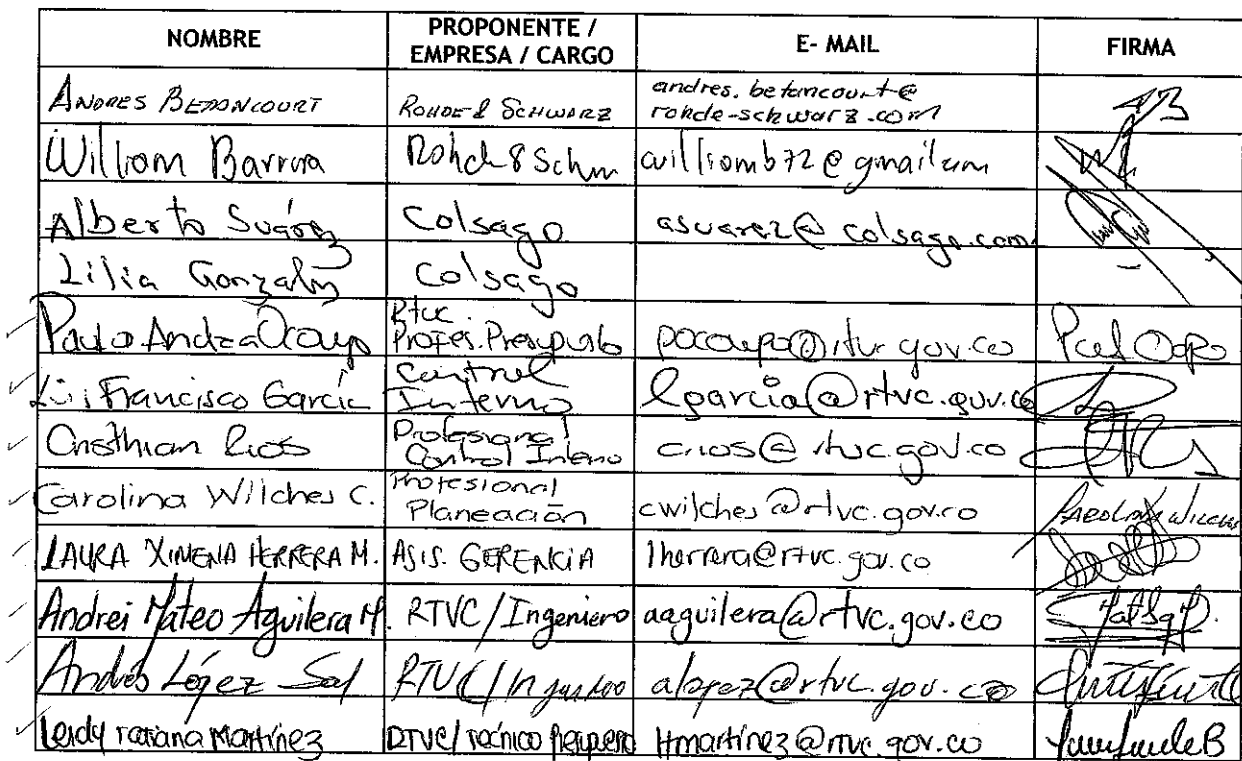 NOMBRE PROPONENTE / EMPRESA / CARGO E- MAIL FIRMA
ANDRES BETANCOURT ROHDE & SCHWARZ andres.betancourt@
rohde-schwarz.com
William Barrera Rohde & Schw williamb72@gmail.com
Alberto Suárez Colsago asuarez@colsago.com
Lilia González Colsago
Paula Andrea Ocampo Rtvc.
Profes. Presupuesto pocampo@rtvc.gov.co
Luis Francisco García Control
Interno lgarcia@rtvc.gov.co
Cristhian Rios Profesional
Control Interno crios@rtvc.gov.co
Carolina Wilches C. Profesional
Planeación cwilches@rtvc.gov.co CAROLINA WILCHES
LAURA XIMENA HERRERA M. ASIS. GERENCIA lherrera@rtvc.gov.co
Andrei Mateo Aguilera M. RTVC/Ingeniero aaguilera@rtvc.gov.co
Andrés López RTVC/ alopez@rtvc.gov.co
Leidy Tatiana Martínez RTVC/Técnico ltmartinez@rtvc.gov.co